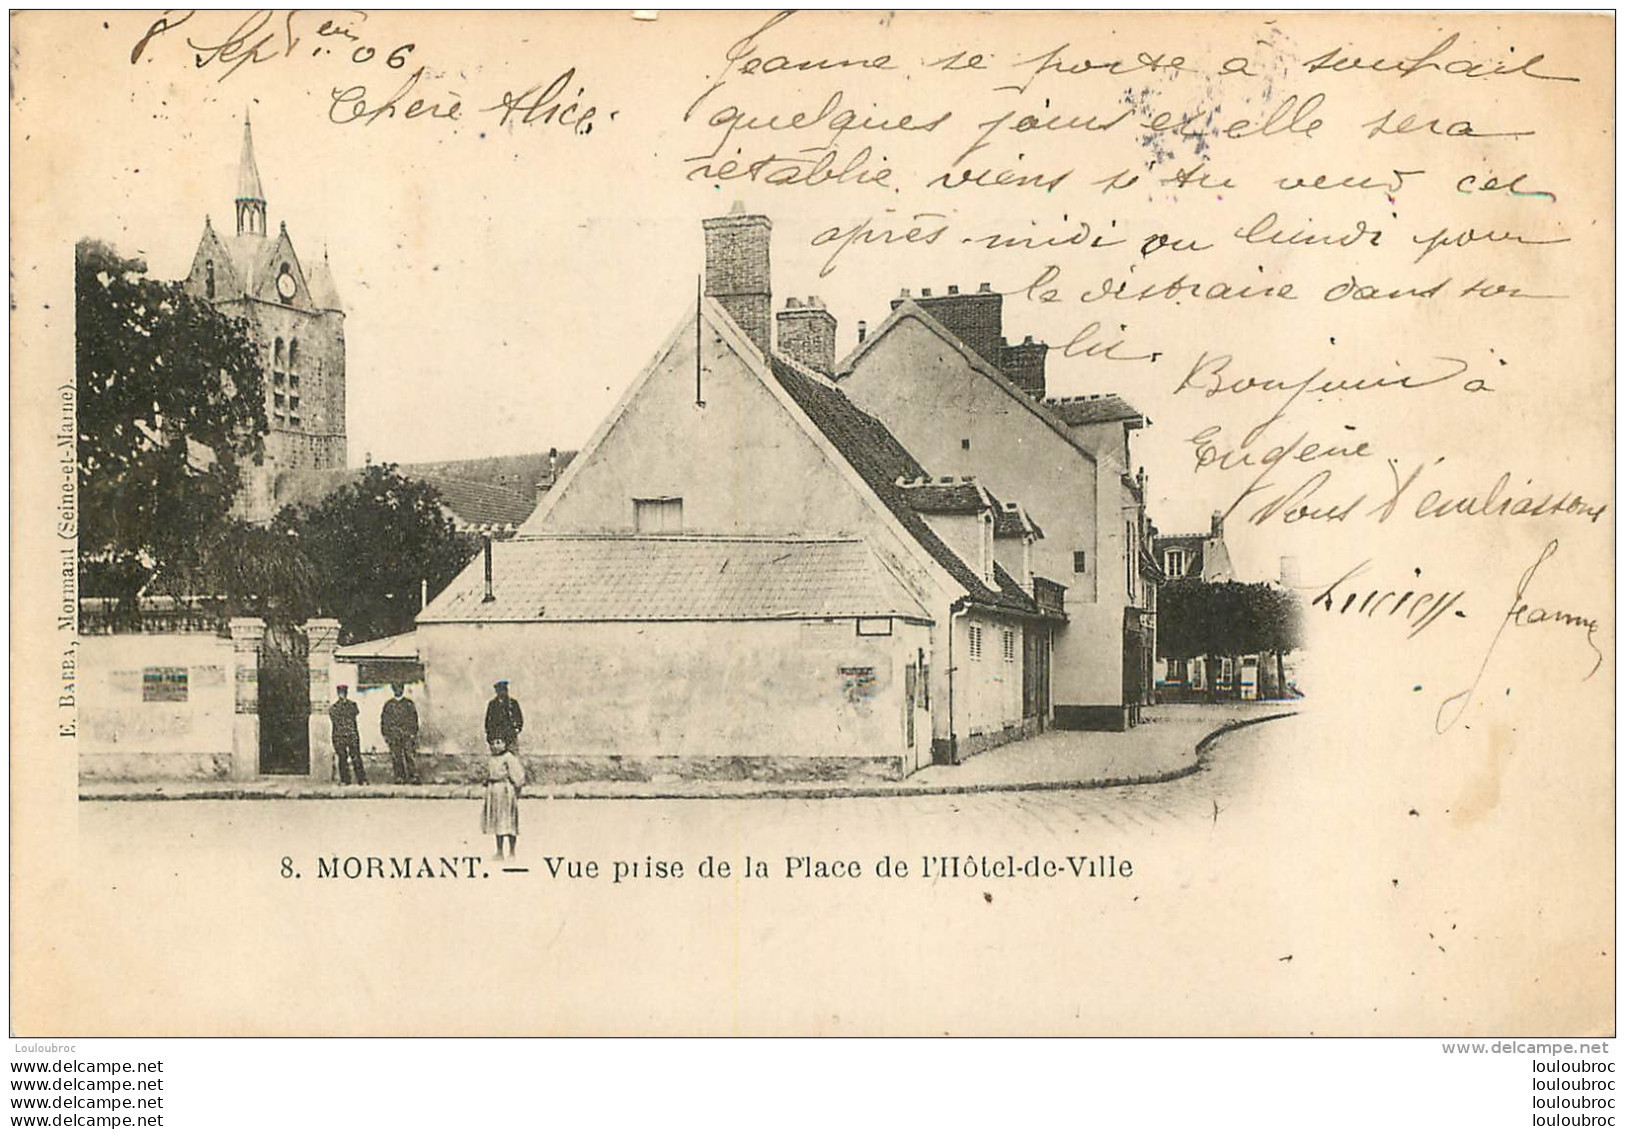 8. Sept 06
Chère Alice.
Jeanne se porte a souhait
quelques jours et elle sera
rétablie. viens si tu veux cet
après-midi ou lundi pour
la distraire dans son
lit.
Bonjour à
Eugène.
Vous t'embrassons
Lucien. Jeanne
E. BARBA, Mormant (Seine-et-Marne).
8. MORMANT. — Vue prise de la Place de l'Hôtel-de-Ville
Louloubroc
www.delcampe.net
www.delcampe.net
www.delcampe.net
www.delcampe.net
www.delcampe.net
louloubroc
louloubroc
louloubroc
louloubroc